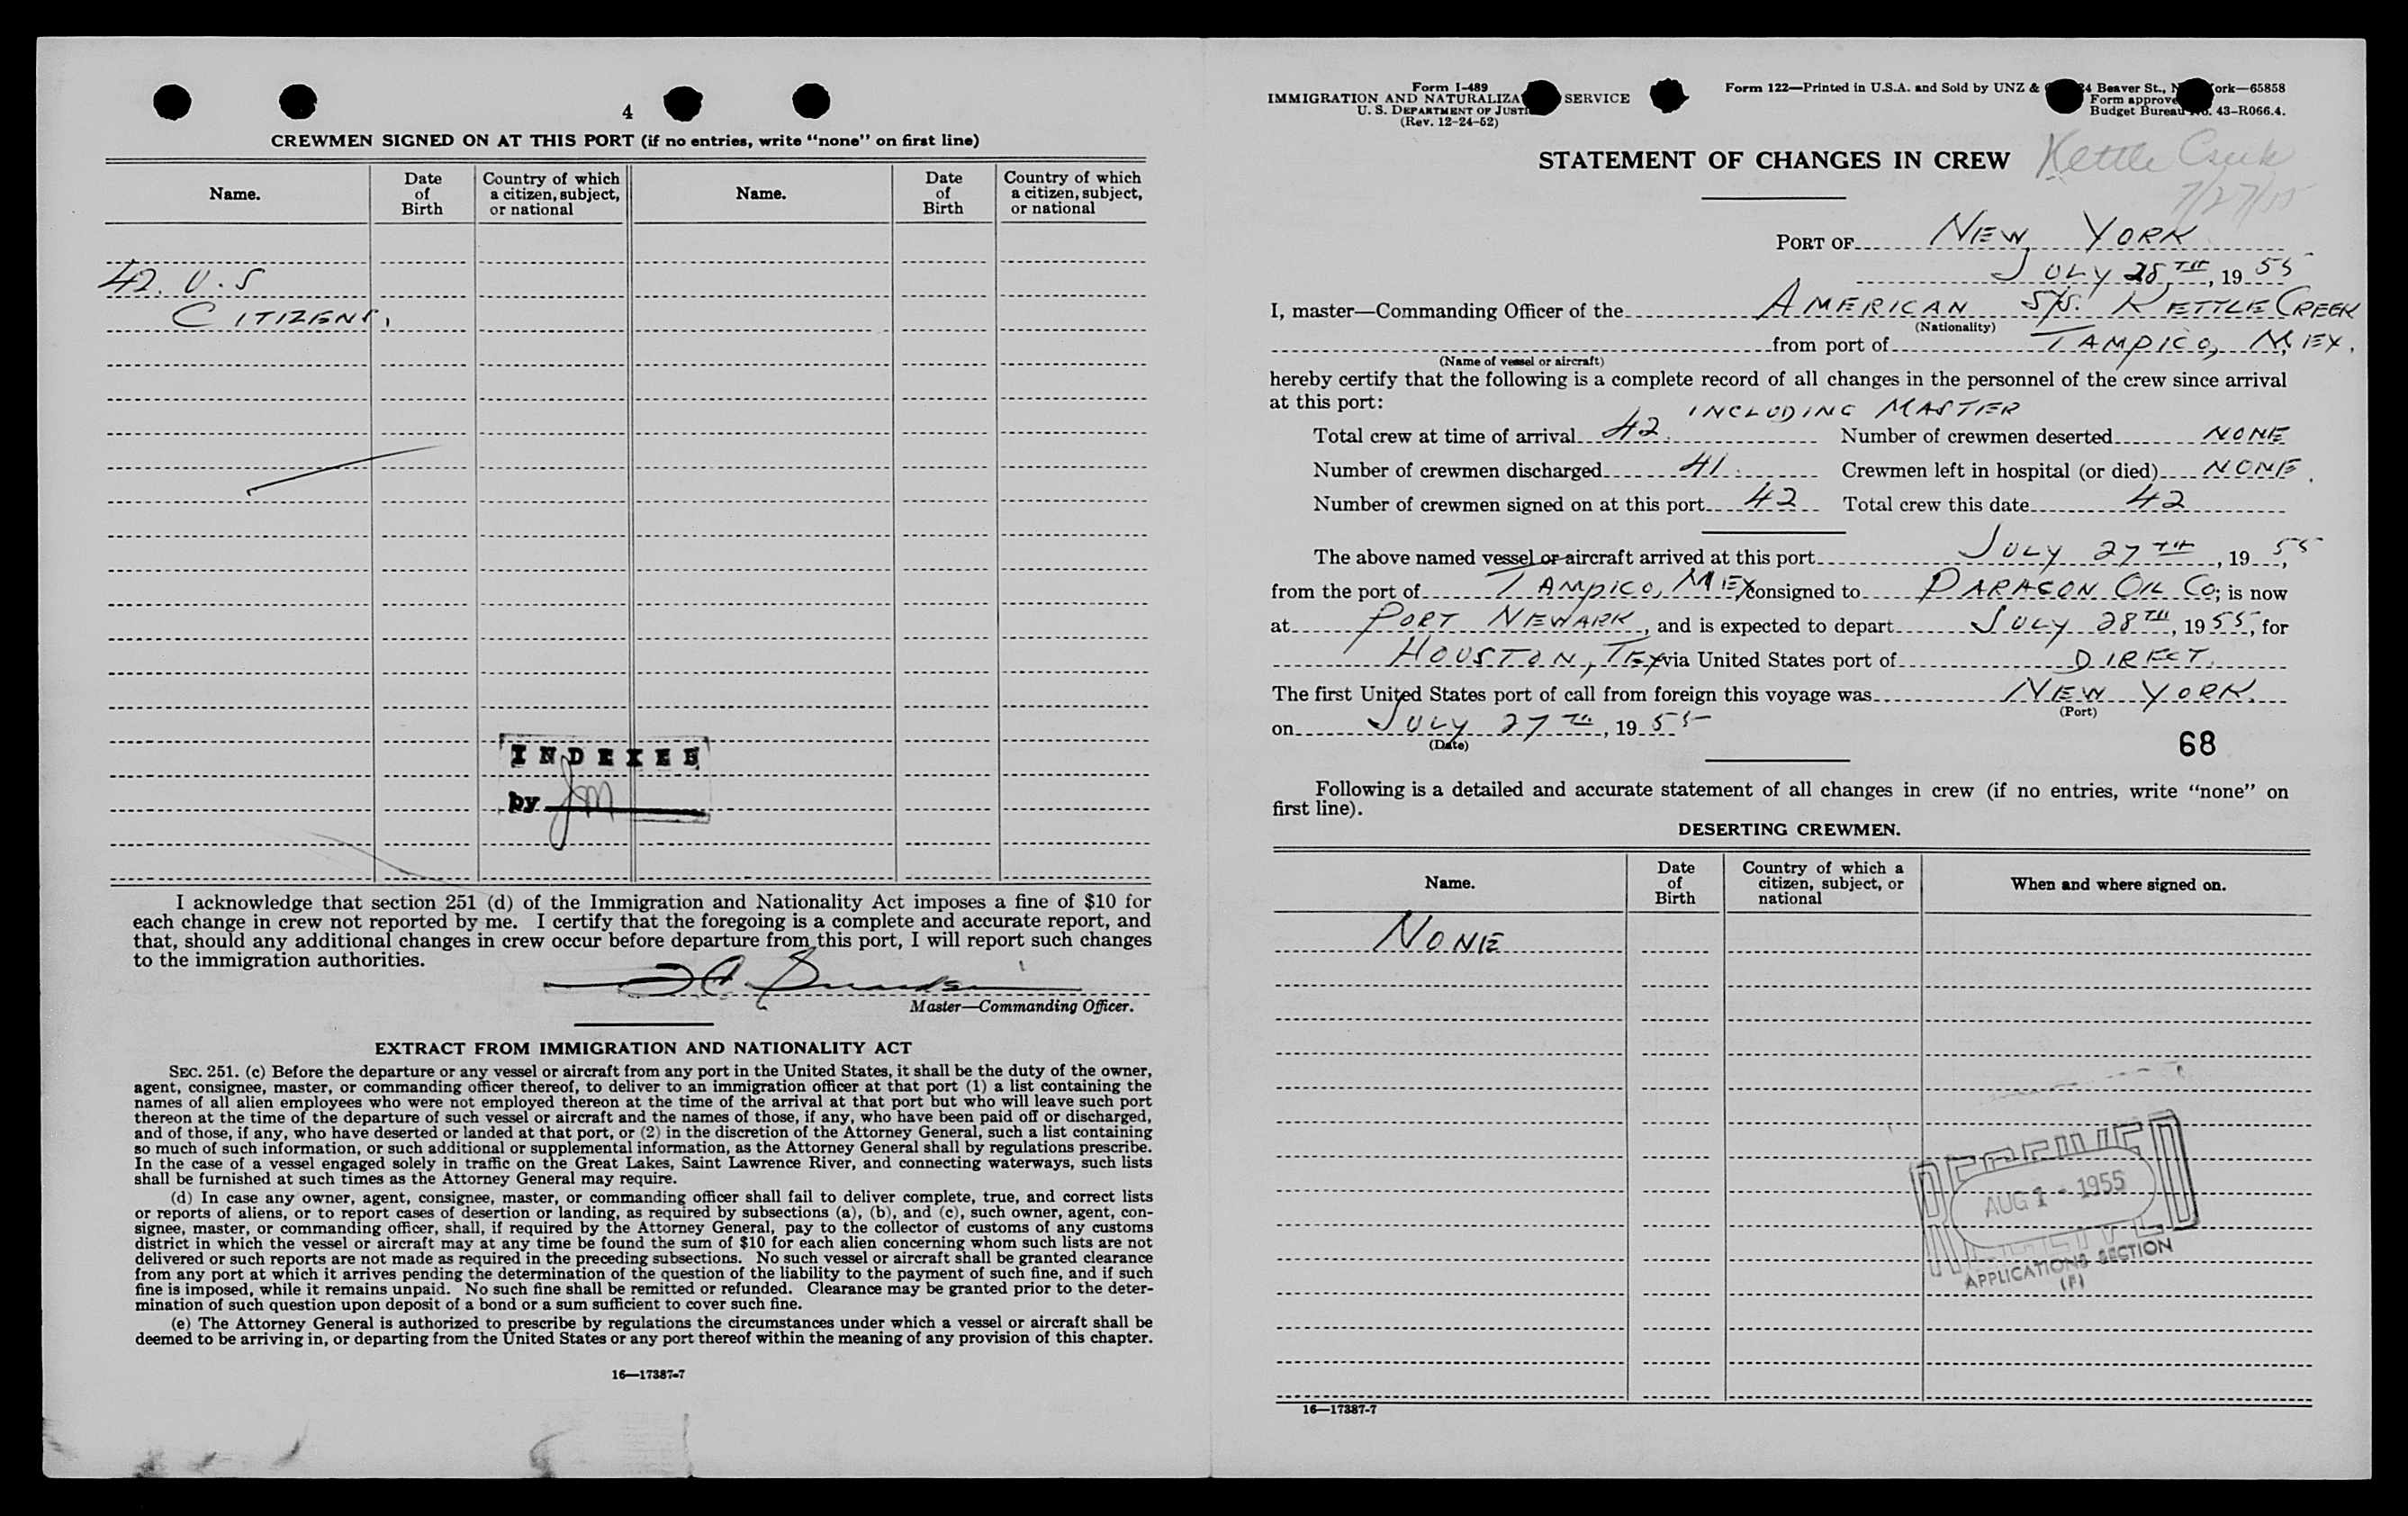 4
CREWMEN SIGNED ON AT THIS PORT (if no entries, write "none" on first line)
Name. Date of Birth Country of which a citizen, subject, or national Name. Date of Birth Country of which a citizen, subject, or national
42. U.S
CITIZENS,
INDEXED
by JM
I acknowledge that section 251 (d) of the Immigration and Nationality Act imposes a fine of $10 for
each change in crew not reported by me. I certify that the foregoing is a complete and accurate report, and
that, should any additional changes in crew occur before departure from this port, I will report such changes
to the immigration authorities.
Master—Commanding Officer.
EXTRACT FROM IMMIGRATION AND NATIONALITY ACT
SEC. 251. (c) Before the departure or any vessel or aircraft from any port in the United States, it shall be the duty of the owner,
agent, consignee, master, or commanding officer thereof, to deliver to an immigration officer at that port (1) a list containing the
names of all alien employees who were not employed thereon at the time of the arrival at that port but who will leave such port
thereon at the time of the departure of such vessel or aircraft and the names of those, if any, who have been paid off or discharged,
and of those, if any, who have deserted or landed at that port, or (2) in the discretion of the Attorney General, such a list containing
so much of such information, or such additional or supplemental information, as the Attorney General shall by regulations prescribe.
In the case of a vessel engaged solely in traffic on the Great Lakes, Saint Lawrence River, and connecting waterways, such lists
shall be furnished at such times as the Attorney General may require.
(d) In case any owner, agent, consignee, master, or commanding officer shall fail to deliver complete, true, and correct lists
or reports of aliens, or to report cases of desertion or landing, as required by subsections (a), (b), and (c), such owner, agent, con-
signee, master, or commanding officer, shall, if required by the Attorney General, pay to the collector of customs of any customs
district in which the vessel or aircraft may at any time be found the sum of $10 for each alien concerning whom such lists are not
delivered or such reports are not made as required in the preceding subsections. No such vessel or aircraft shall be granted clearance
from any port at which it arrives pending the determination of the question of the liability to the payment of such fine, and if such
fine is imposed, while it remains unpaid. No such fine shall be remitted or refunded. Clearance may be granted prior to the deter-
mination of such question upon deposit of a bond or a sum sufficient to cover such fine.
(e) The Attorney General is authorized to prescribe by regulations the circumstances under which a vessel or aircraft shall be
deemed to be arriving in, or departing from the United States or any port thereof within the meaning of any provision of this chapter.
16—17387-7
Form I-489
IMMIGRATION AND NATURALIZA SERVICE
U. S. DEPARTMENT OF JUSTI
(Rev. 12-24-52)
Form 122—Printed in U.S.A. and Sold by UNZ & 4 Beaver St., N ork—65858
Form approve
Budget Bureau No. 43-R066.4.
STATEMENT OF CHANGES IN CREW Kettle Creek
7/27/55
PORT OF NEW YORK
JULY 28TH, 1955
I, master—Commanding Officer of the AMERICAN S/S. KETTLE CREEK
(Nationality)
from port of TAMPICO, MEX.
(Name of vessel or aircraft)
hereby certify that the following is a complete record of all changes in the personnel of the crew since arrival
at this port: INCLUDING MASTER
Total crew at time of arrival 42. Number of crewmen deserted NONE
Number of crewmen discharged 41. Crewmen left in hospital (or died) NONE.
Number of crewmen signed on at this port 42 Total crew this date 42
The above named vessel or aircraft arrived at this port JULY 27TH, 1955
from the port of TAMPICO, MEX consigned to PARAGON OIL CO; is now
at PORT NEWARK, and is expected to depart JULY 28TH, 1955, for
HOUSTON, TEX via United States port of DIRECT.
The first United States port of call from foreign this voyage was NEW YORK.
(Port)
on JULY 27TH, 1955
(Date)
68
Following is a detailed and accurate statement of all changes in crew (if no entries, write "none" on
first line).
DESERTING CREWMEN.
Name. Date of Birth Country of which a citizen, subject, or national When and where signed on.
NONE
RECEIVED
AUG 1 - 1955
APPLICATIONS SECTION
(F)
16—17387-7